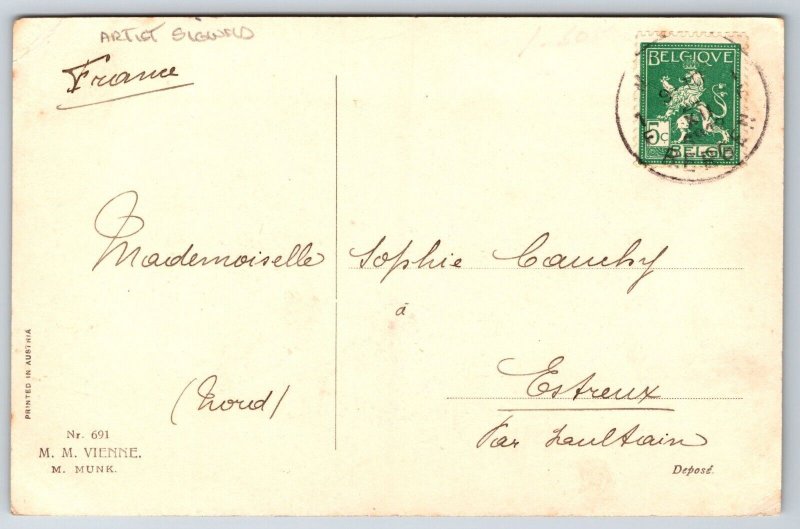 ARTIST SIGNED
France
BELGIQUE
5c
BELGIË
Mademoiselle Sophie Cauchy
à
Estreux
(Nord)
Par Saultain
PRINTED IN AUSTRIA
Nr. 691
M. M. VIENNE.
M. MUNK.
Deposé.